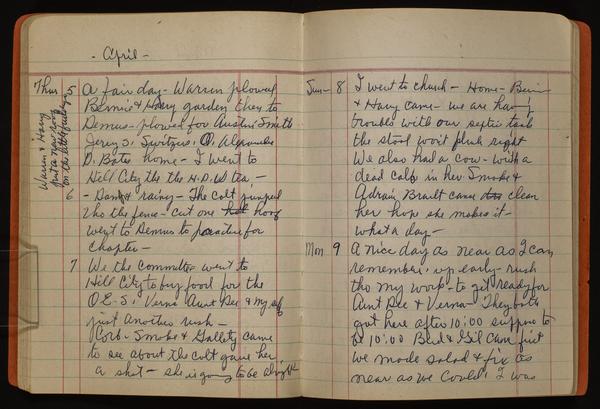 - April -
Thur 5 A fair day - Warren plowed
Bennie & Harry garden they to
Demus - plowed for Austin Smith
Jerry S, Switzers, O, Alexander
D. Bates home - I went to
Hill City the the H.D.U tea -
Warren & Harry
Put a new roof
on the little
6 - Damp & rainy - The colt jumped
tho the fence - cut one hoof
went to Demus to practice for
chapter -
7 We the committee went to
Hill City to buy food for the
O.E.S, Verna Aunt Dee & my self
just another rush -
Corb - Smoke & Gallety came
to see about the colt gave her
a shot - she is going to be alright
Sun - 8 I went to church - Home - Bennie
& Harry came - we are having
trouble with our septic tank
the stool won't flush right
We also had a cow - with a
dead calf in her Smoke &
Adrain Brault came clean
her hope she makes it -
what a day -
Mon 9 A nice day as near as I can
remember, up early - rush
tho my work - to get ready for
Aunt Dee & Verna - They both
got here after 10:00 suppose to
be 10:00 Bird & Gil came first
we made salad & fix as
near as we could, I was